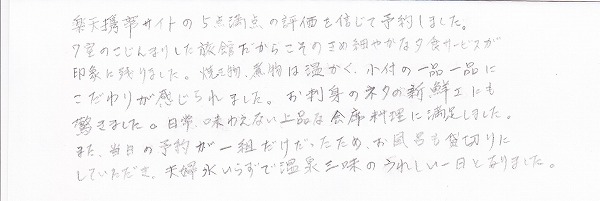 楽天携帯サイトの5点満点の評価を信じて予約しました。
7室のこじんまりした旅館だからこそのきめ細やかな夕食サービスが
印象に残りました。焼き物、煮物は温かく、小付の一品一品に
こだわりが感じられました。お刺身のネタの新鮮さにも
驚きました。日常、味わえない上品な会席料理に満足しました。
また、当日の予約が一組だけだったため、お風呂も貸切りに
していただき、夫婦水いらずで温泉三昧のうれしい一日となりました。